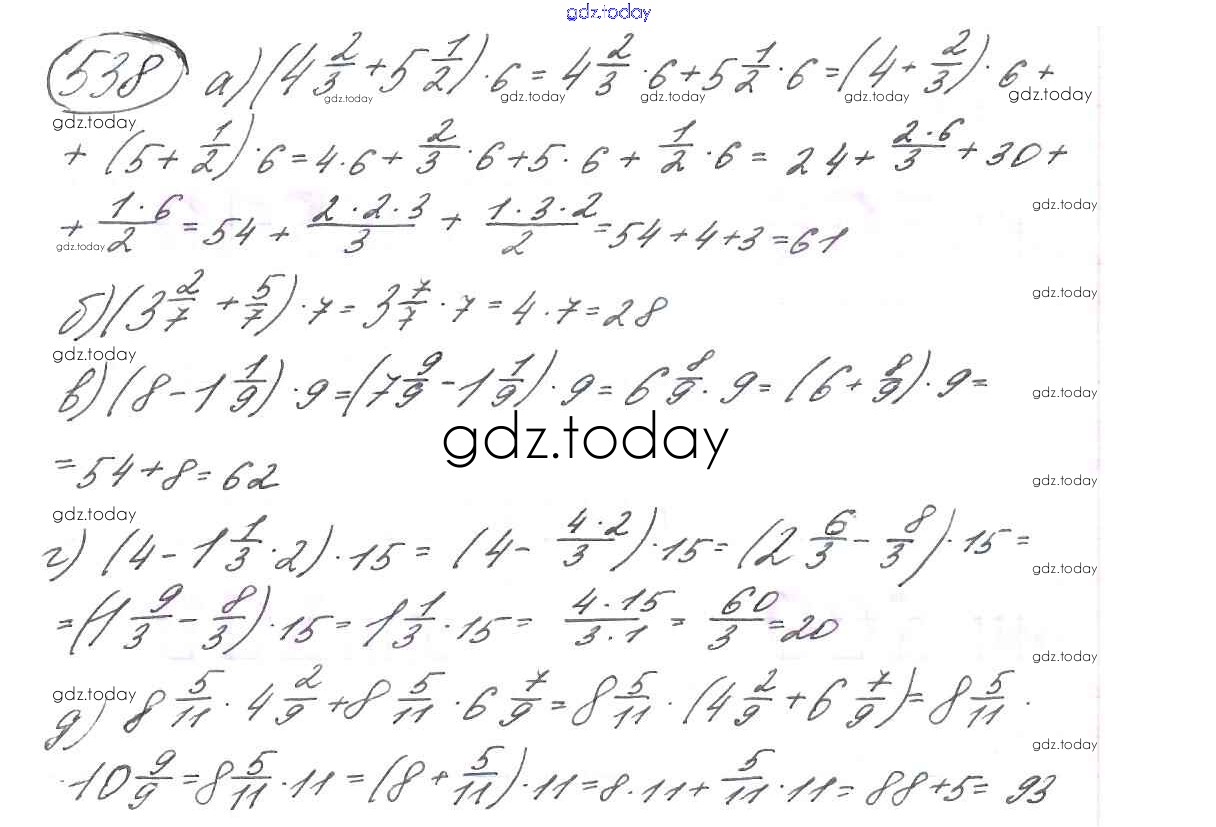 gdz.today
538 а) (4 2/3 + 5 1/2) · 6 = 4 2/3 · 6 + 5 1/2 · 6 = (4 + 2/3) · 6 +
gdz.today gdz.today gdz.today gdz.today gdz.today
gdz.today
+ (5 + 1/2) · 6 = 4 · 6 + 2/3 · 6 + 5 · 6 + 1/2 · 6 = 24 + 2·6/3 + 30 +
gdz.today
+ 1·6/2 = 54 + 2·2·3/3 + 1·3·2/2 = 54 + 4 + 3 = 61
gdz.today
gdz.today
б) (3 2/7 + 5/7) · 7 = 3 7/7 · 7 = 4 · 7 = 28
gdz.today
в) (8 - 1 1/9) · 9 = (7 9/9 - 1 1/9) · 9 = 6 8/9 · 9 = (6 + 8/9) · 9 =
gdz.today
gdz.today
= 54 + 8 = 62
gdz.today
gdz.today
г) (4 - 1 1/3 · 2) · 15 = (4 - 4·2/3) · 15 = (2 6/3 - 8/3) · 15 =
gdz.today
= (1 9/3 - 8/3) · 15 = 1 1/3 · 15 = 4·15/3·1 = 60/3 = 20
gdz.today
gdz.today
д) 8 5/11 · 4 2/9 + 8 5/11 · 6 7/9 = 8 5/11 · (4 2/9 + 6 7/9) = 8 5/11 ·
gdz.today
· 10 9/9 = 8 5/11 · 11 = (8 + 5/11) · 11 = 8 · 11 + 5/11 · 11 = 88 + 5 = 93